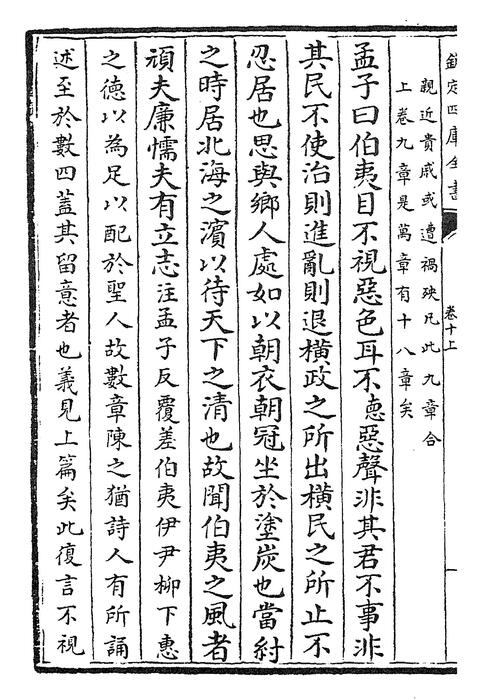 欽定四庫全書
卷十上
親近貴戚或遭禍殃凡此九章合
上卷九章是萬章有十八章矣
孟子曰伯夷目不視惡色耳不聽惡聲非其君不事非
其民不使治則進亂則退橫政之所出橫民之所止不
忍居也思與鄉人處如以朝衣朝冠坐於塗炭也當紂
之時居北海之濱以待天下之清也故聞伯夷之風者
頑夫廉懦夫有立志注孟子反覆差伯夷伊尹柳下惠
之德以為足以配於聖人故數章陳之猶詩人有所誦
述至於數四蓋其留意者也義見上篇矣此復言不視